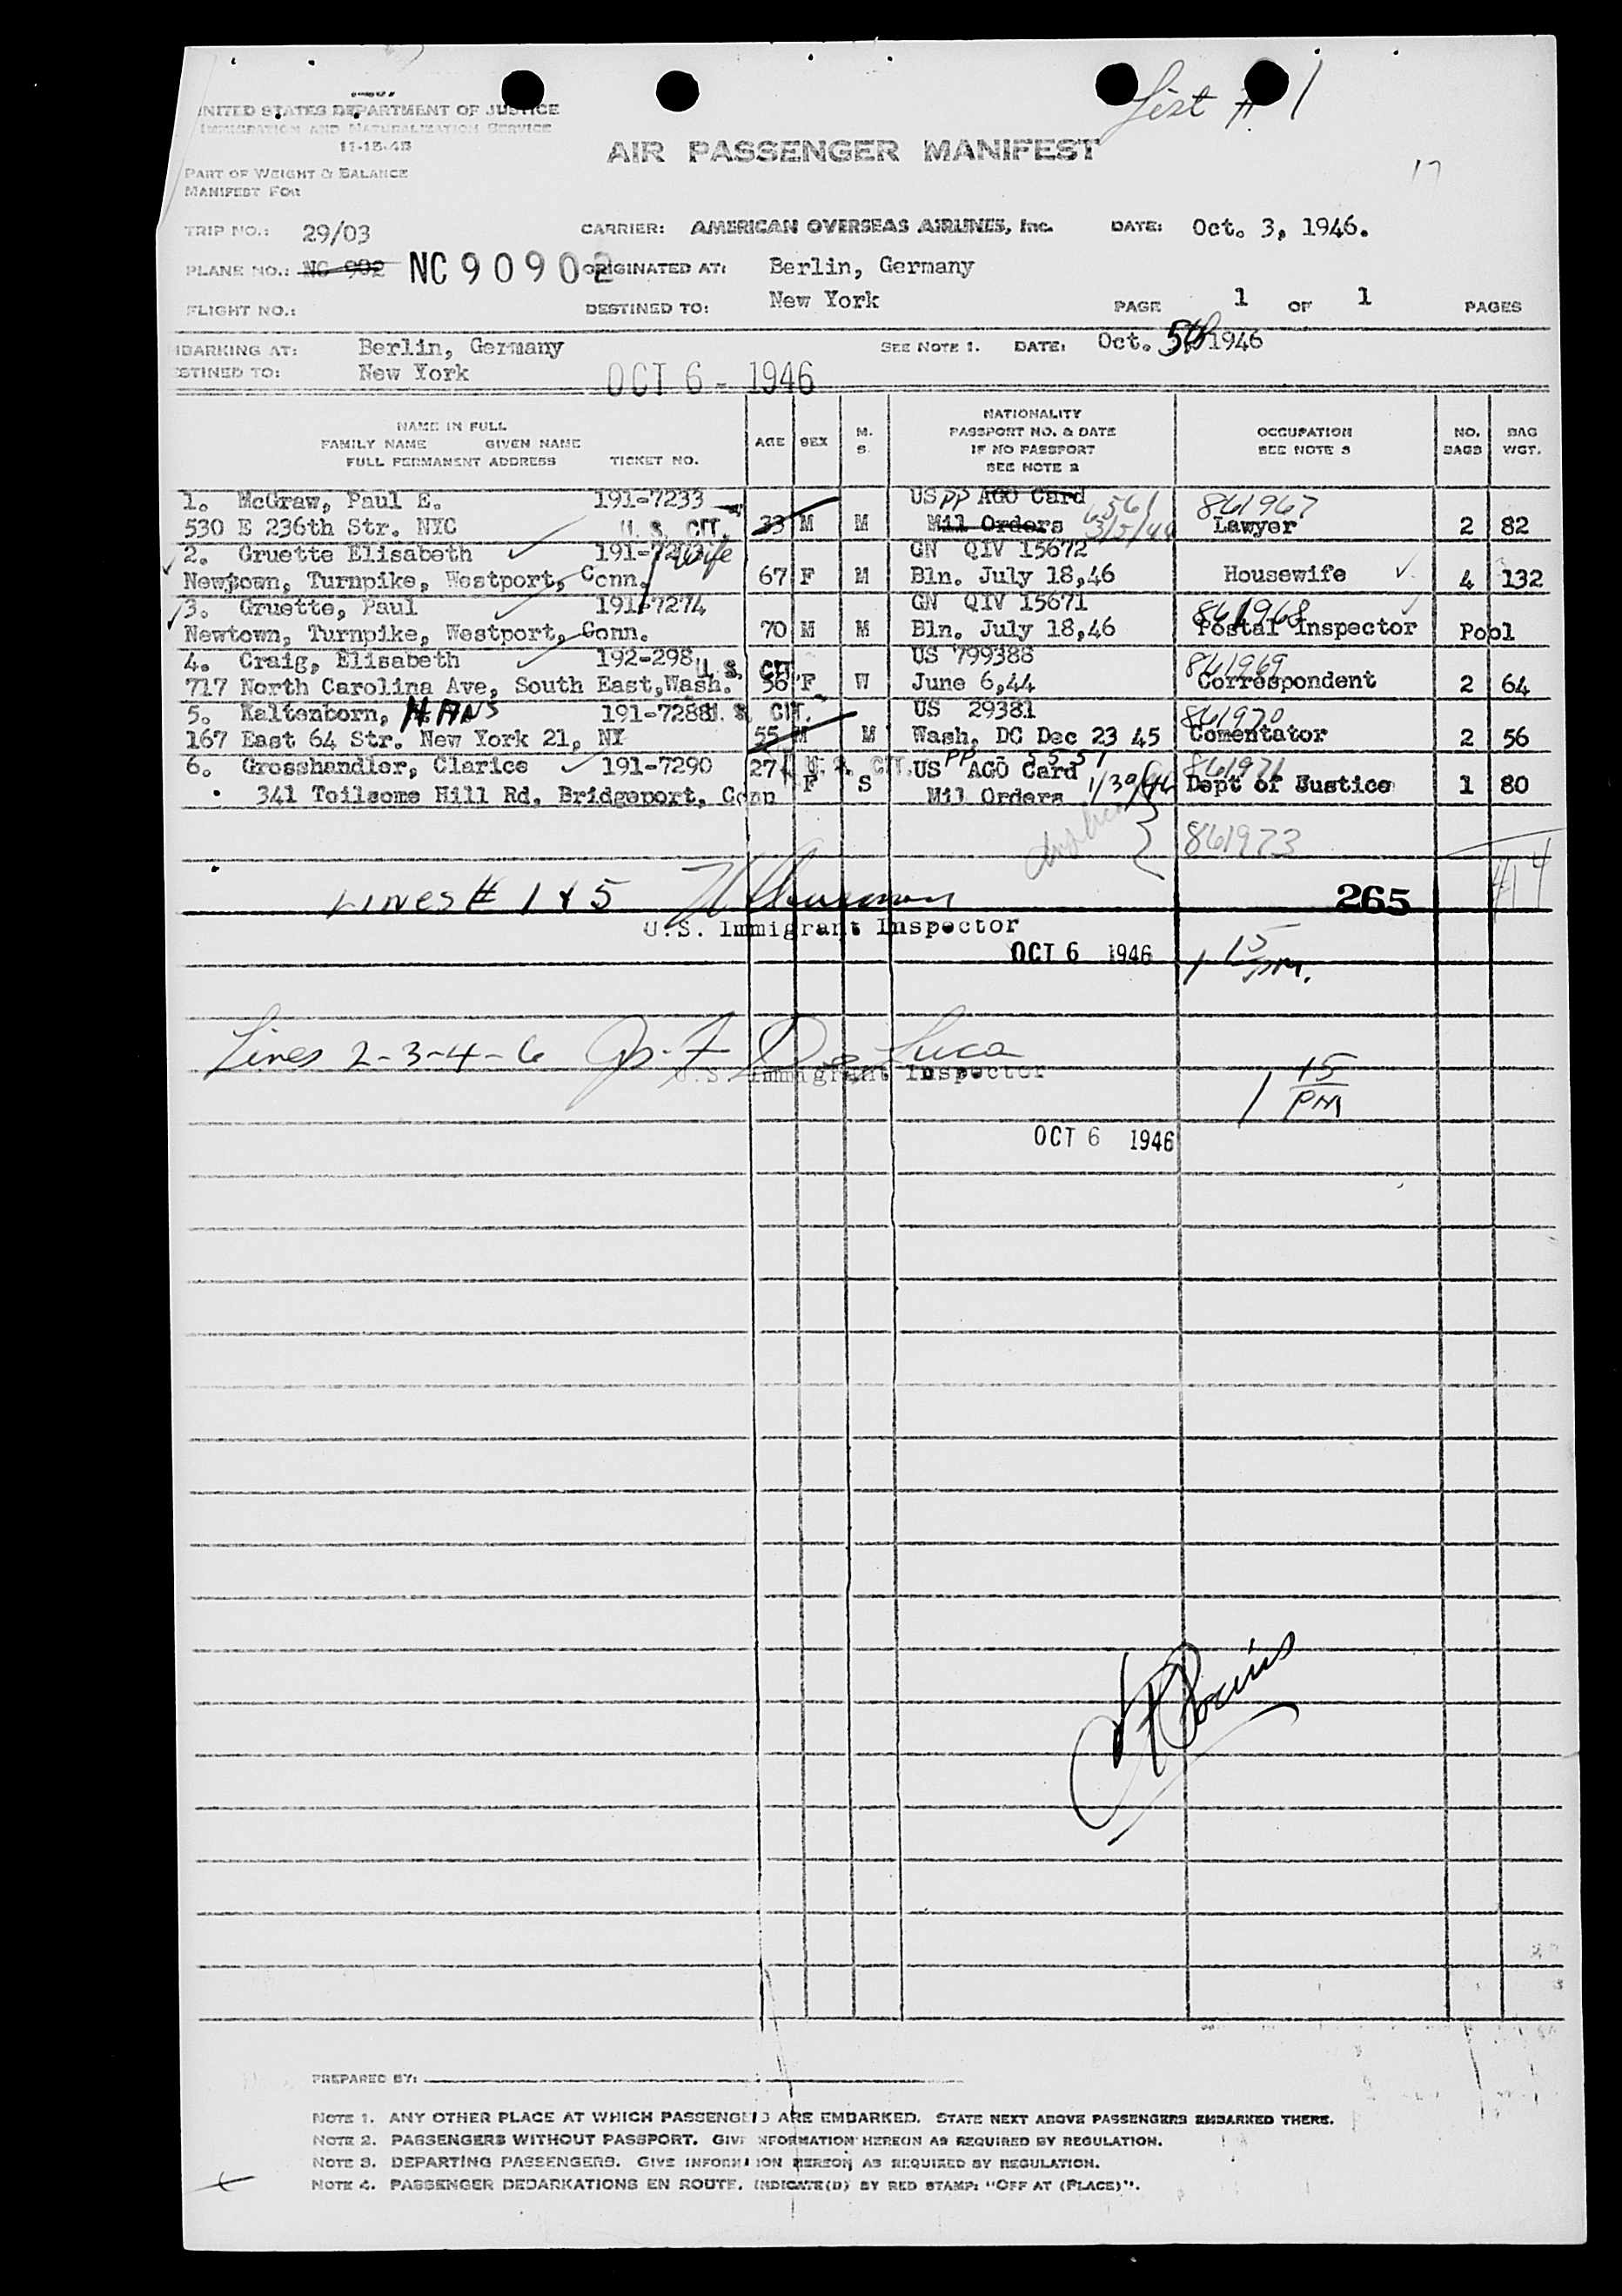 List # 1
UNITED STATES DEPARTMENT OF JUSTICE
IMMIGRATION AND NATURALIZATION SERVICE
11-15-45
AIR PASSENGER MANIFEST
17
PART OF WEIGHT & BALANCE
MANIFEST FOR
TRIP NO.: 29/03 CARRIER: AMERICAN OVERSEAS AIRLINES, Inc. DATE: Oct. 3, 1946.
PLANE NO.: NC 902 NC90902 ORIGINATED AT: Berlin, Germany
FLIGHT NO.: DESTINED TO: New York PAGE 1 OF 1 PAGES
MBARKING AT: Berlin, Germany SEE NOTE 1. DATE: Oct. 5th 1946
STINED TO: New York OCT 6 - 1946
NAME IN FULL
FAMILY NAME GIVEN NAME
FULL PERMANENT ADDRESS TICKET NO. AGE SEX M. S. NATIONALITY PASSPORT NO. & DATE IF NO PASSPORT SEE NOTE 2 OCCUPATION SEE NOTE 3 NO. BAGS BAG WGT.
1. McGraw, Paul E. 191-7233 US PP AGO Card 6561 861967
530 E 236th Str. NYC U. S. CIT. 33 M M Mil Orders Lawyer 2 82
2. Gruette Elisabeth wife GN QIV 15672
Newtown, Turnpike, Westport, Conn. 67 F M Bln. July 18,46 Housewife 4 132
3. Gruette, Paul 191-7274 GN QIV 15671 861968
Newtown, Turnpike, Westport, Conn. 70 M M Bln. July 18,46 Postal Inspector Pool
4. Craig, Elisabeth 192-298 U. S. CIT. US 799388 861969
717 North Carolina Ave, South East,Wash. 56 F W June 6,44 Correspondent 2 64
5. Kaltenborn, HANS 191-7288 U. S. CIT. US 29381 861970
167 East 64 Str. New York 21, NY 55 M M Wash, DC Dec 23 45 Comentator 2 56
6. Grosshandler, Clarice 191-7290 27 U. S. CIT. US PP AGO Card 5551 861971
341 Toilsome Hill Rd, Bridgeport, Conn F S Mil Orders 1/30/46 Dept of Justice 1 80
861973
414
LINES # 1 & 5 265
U.S. Immigrant Inspector
OCT 6 1946 1 15 PM.
Lines 2-3-4-6 Jos. F. De Luca
U.S. Immigrant Inspector
1 15 PM
OCT 6 1946
PREPARED BY:
NOTE 1. ANY OTHER PLACE AT WHICH PASSENGERS ARE EMBARKED. STATE NEXT ABOVE PASSENGERS EMBARKED THERE.
NOTE 2. PASSENGERS WITHOUT PASSPORT. GIVE INFORMATION HEREON AS REQUIRED BY REGULATION.
NOTE 3. DEPARTING PASSENGERS. GIVE INFORMATION HEREON AS REQUIRED BY REGULATION.
NOTE 4. PASSENGER DEBARKATIONS EN ROUTE. INDICATE(D) BY RED STAMP: "OFF AT (PLACE)".